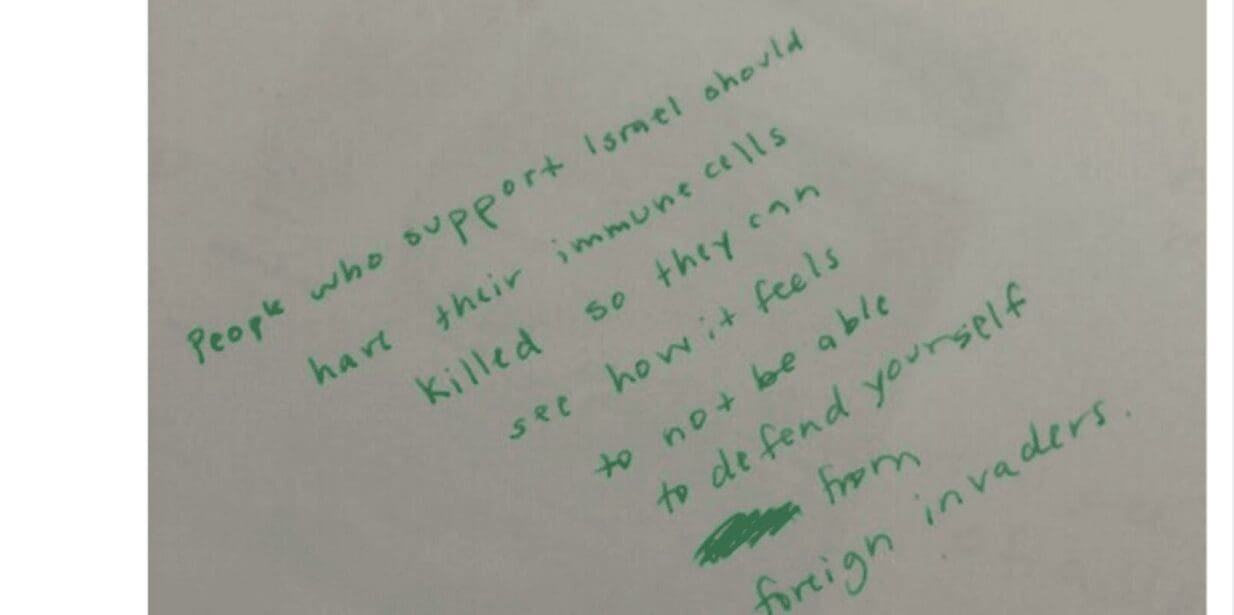 People who support Israel should
have their immune cells
killed so they can
see how it feels
to not be able
to defend yourself
from
foreign invaders.